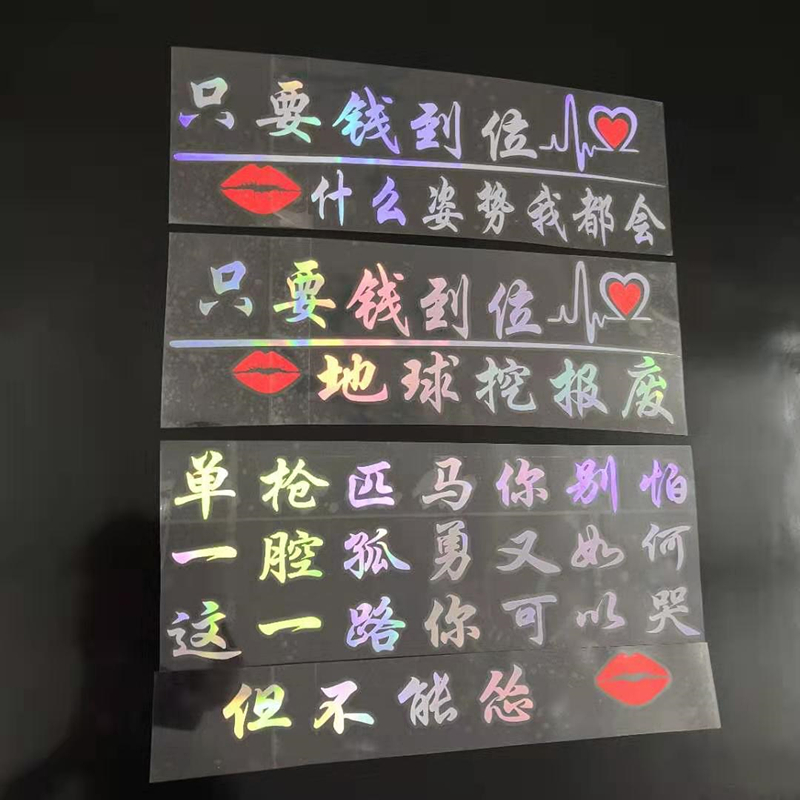 只要钱到位
什么姿势我都会
只要钱到位
地球挖报废
单枪匹马你别怕
一腔孤勇又如何
这一路你可以哭
但不能怂